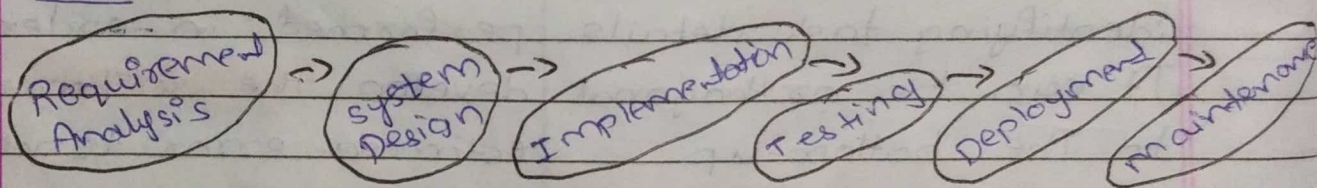 Requirement
Analysis
→ System
Design
→ Implementation
→ Testing
→ Deployment
→ Maintenanc